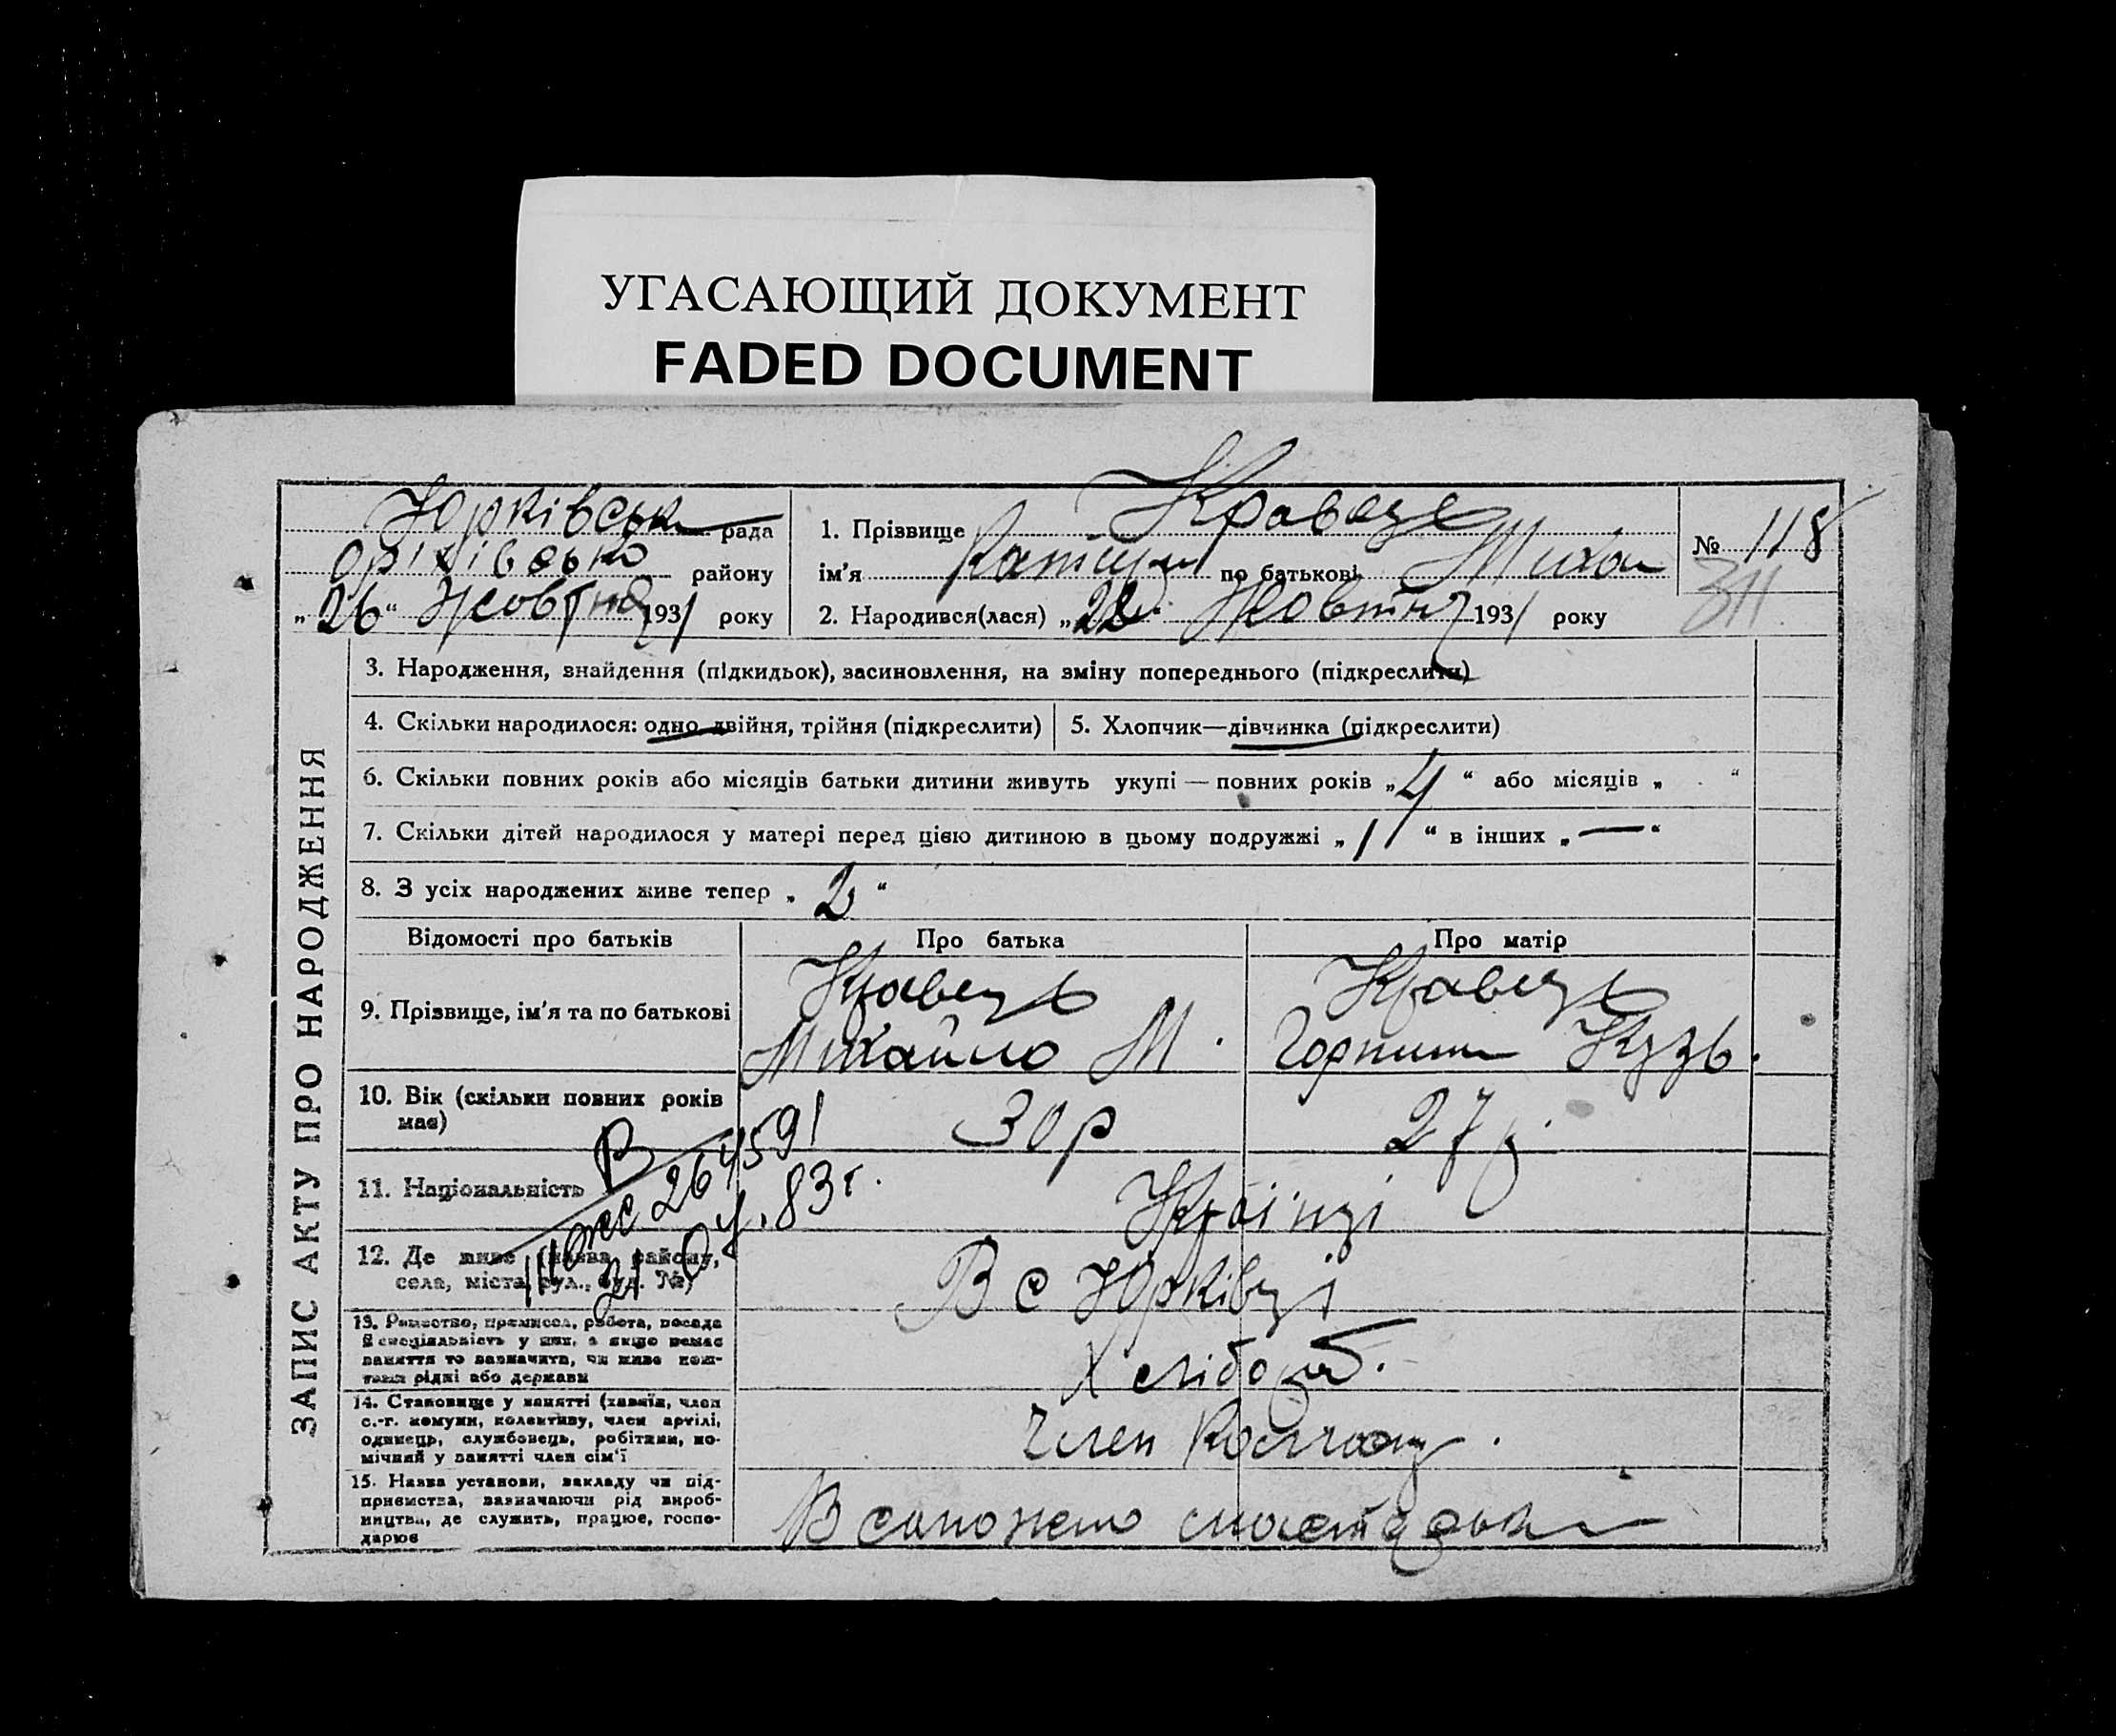 УГАСАЮЩИЙ ДОКУМЕНТ
FADED DOCUMENT
Юрківська рада
Оріхівсько району
„26“ Жовтня 1931 року
1. Прізвище Кравець
ім'я по батькові Михай
2. Народився(лася) „22“ Жовтня 1931 року
№ 118
311
ЗАПИС АКТУ ПРО НАРОДЖЕННЯ
3. Народження, знайдення (підкидьок), засиновлення, на зміну попереднього (підкреслити)
4. Скільки народилося: одно, двійня, трійня (підкреслити)
5. Хлопчик—дівчинка (підкреслити)
6. Скільки повних років або місяців батьки дитини живуть укупі — повних років „4“ або місяців „ “
7. Скільки дітей народилося у матері перед цією дитиною в цьому подружжі „1“ в інших „—“
8. З усіх народжених живе тепер „2“
Відомості про батьків
Про батька
Про матір
9. Прізвище, ім'я та по батькові
Кравець
Михайло М.
Кравець
Горпина Кузь.
10. Вік (скільки повних років
має)
30 р
27 р.
11. Національність
Країнці
В
264591
21 04.83г.
12. Де живе (назва району,
села, міста, вул., буд. №)
В с Юрківці
13. Ремество, промисел, робота, посада
й спеціяльність у них, а якщо немає
заняття то зазначити, чи живе кош-
тами рідні або держави
Хлібороб.
14. Становище у занятті (хазяїн, член
с.-г. комуни, колективу, член артілі,
одинець, службовець, робітник, по-
мічний у занятті член сім'ї
Член Колгоспу.
15. Назва установи, закладу чи під-
приємства, зазначаючи рід вироб-
ництва, де служить, працює, госпо-
дарює
В